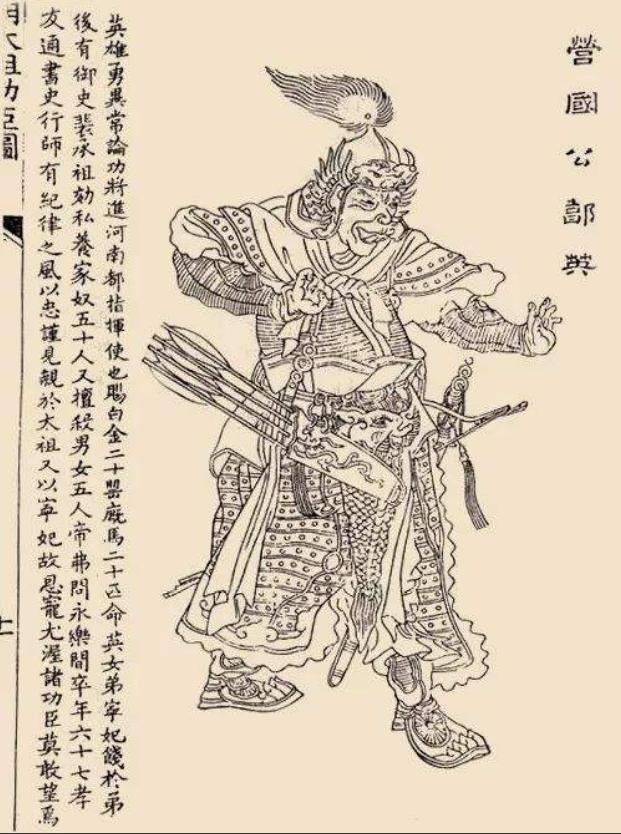 營國公郭英
英雄勇異常論功將進河南都指揮使也賜白金二十罌廐馬二十匹命英女弟寧妃餞於弟
後有御史裴承祖劾私養家奴五十人又擅殺男女五人帝弗問永樂間卒年六十七孝
友通書史行師有紀律之風以忠謹見親於太祖又以寧妃故恩寵尤渥諸功臣莫敢望焉
明太祖功臣圖